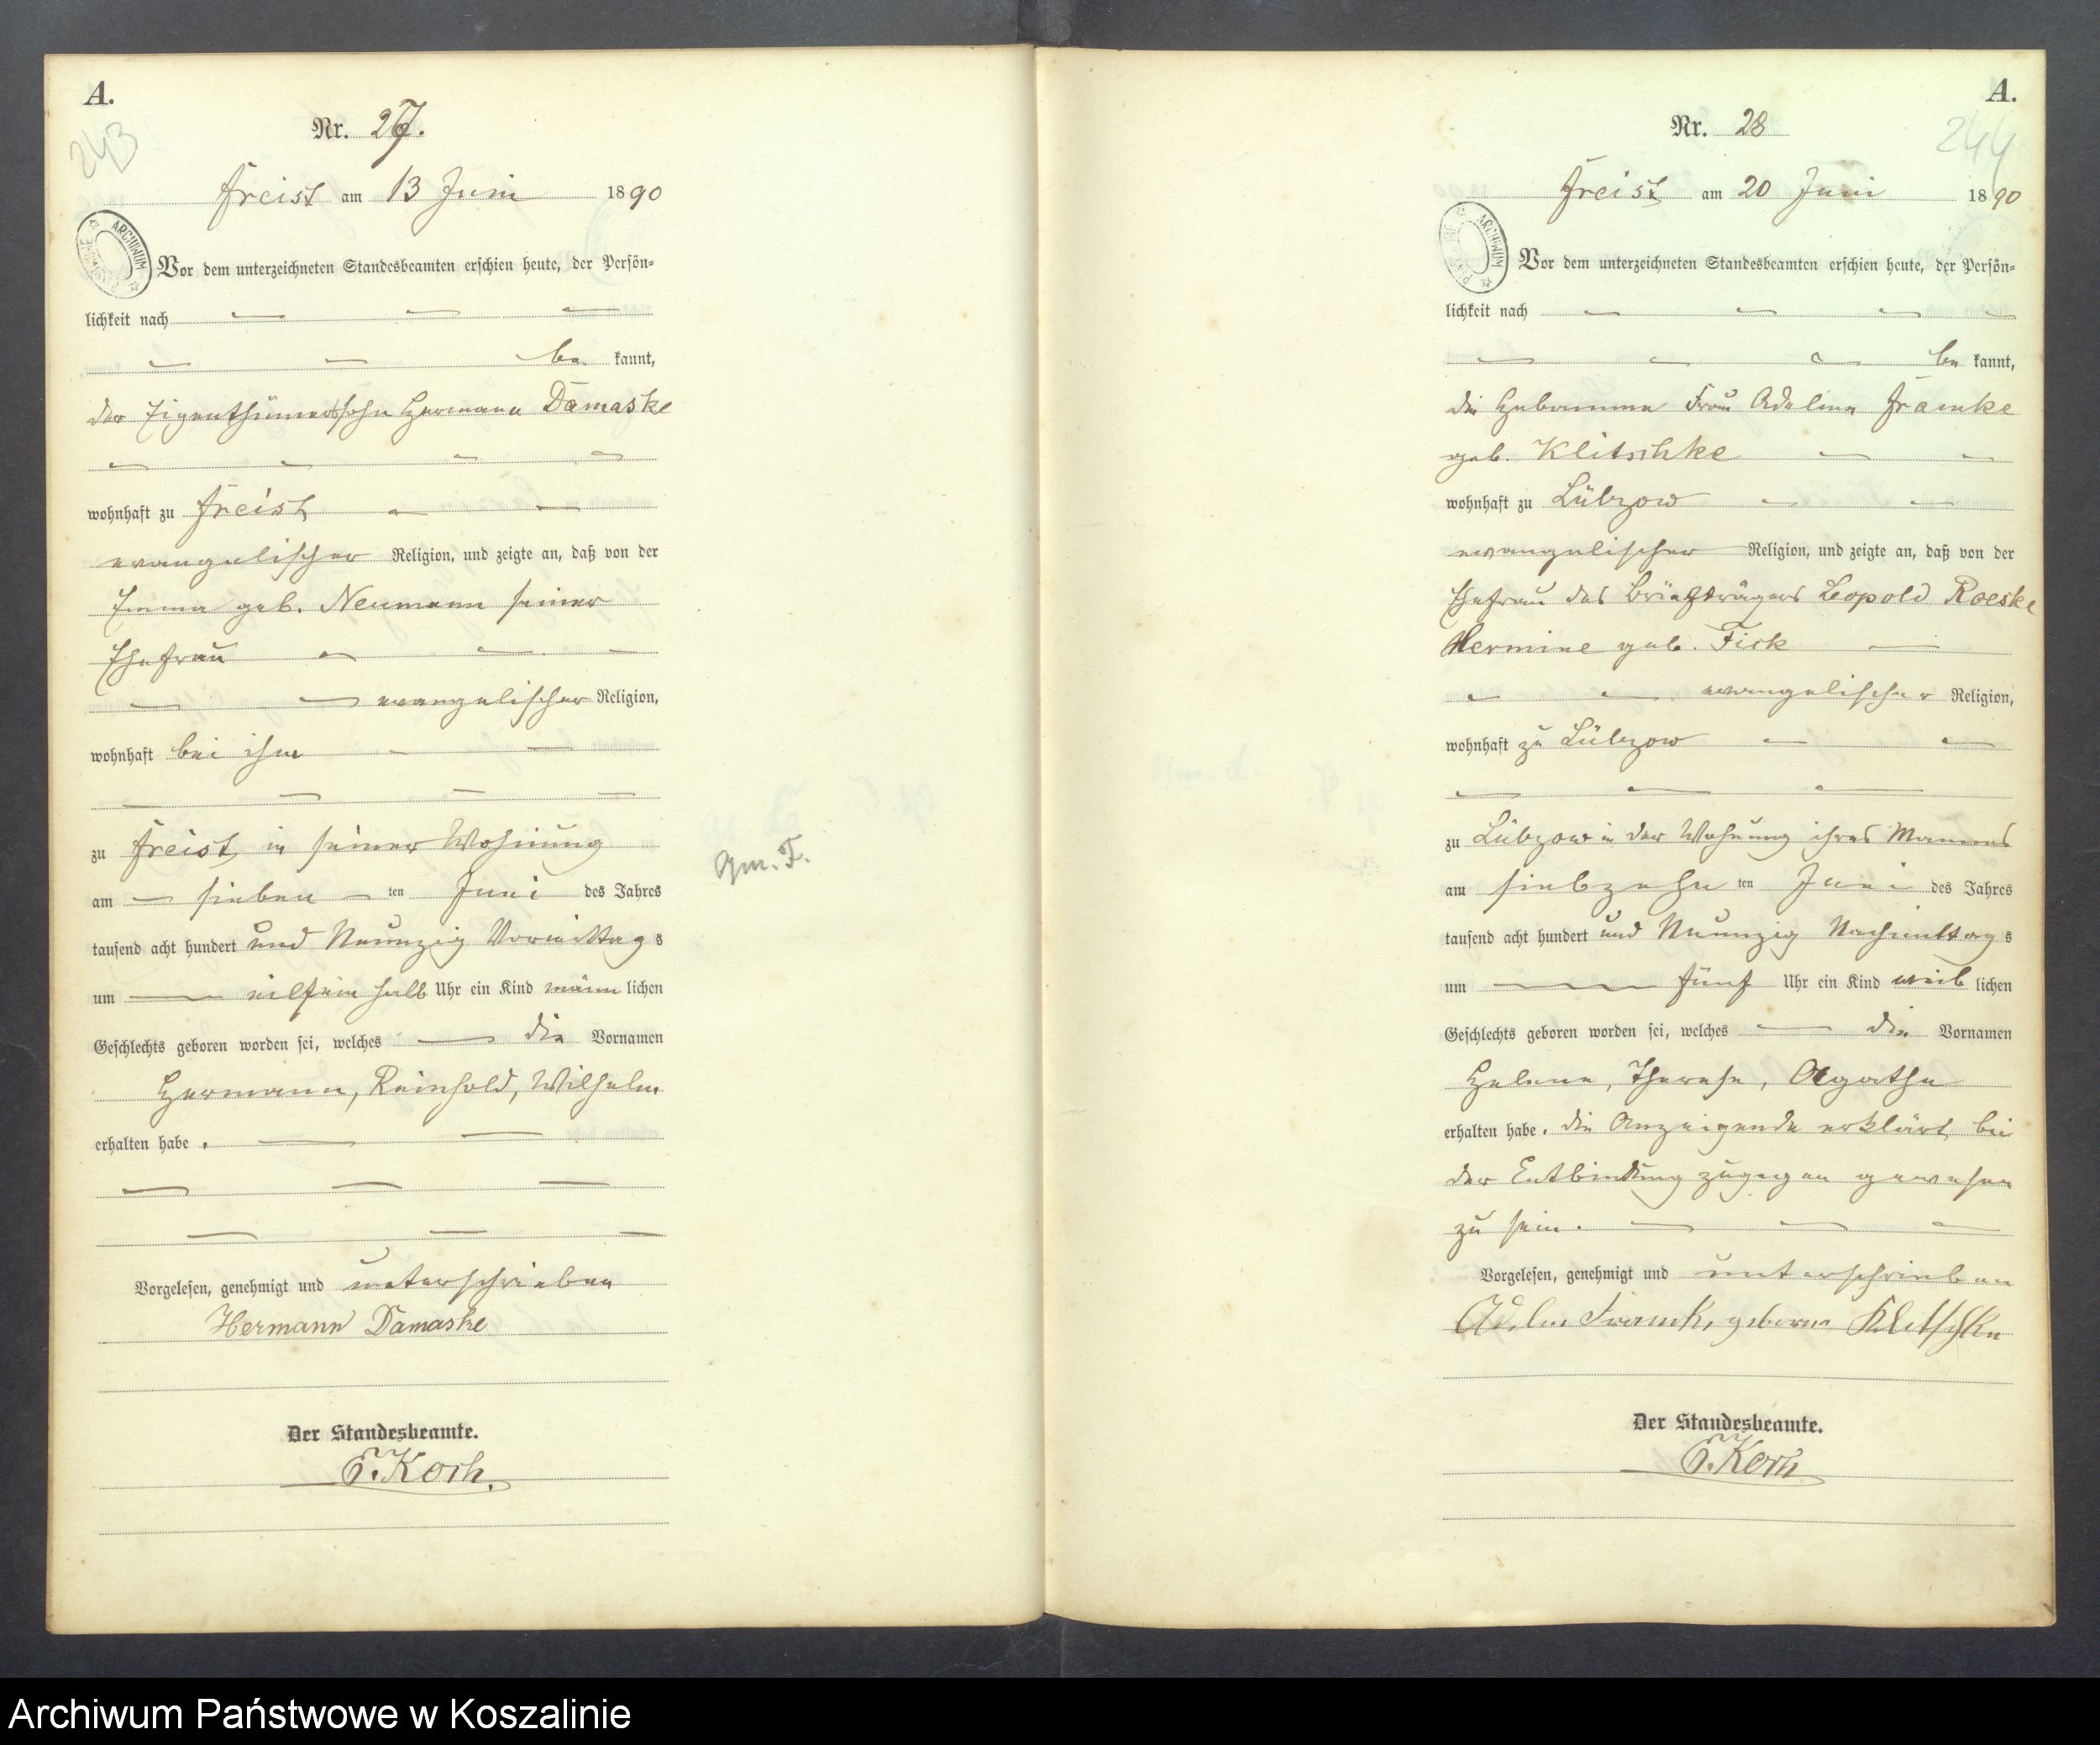 A.
243
Nr. 27.
Freist am 13 Juni 1890
ARCHIWUM PAŃSTWOWE
Vor dem unterzeichneten Standesbeamten erschien heute, der Persön-
lichkeit nach
be kannt,
der Eigenthümersohn Hermann Damaske
wohnhaft zu Freist
evangelischer Religion, und zeigte an, daß von der
Emma geb. Neumann seiner
Ehefrau
evangelischer Religion,
wohnhaft bei ihm
zu Freist in seiner Wohnung
am sieben ten Juni des Jahres
tausend acht hundert und Neunzig Vormittag s
um eilfein halb Uhr ein Kind männ lichen
Geschlechts geboren worden sei, welches die Vornamen
Hermann, Reinhold, Wilhelm
erhalten habe.
Vorgelesen, genehmigt und unterschrieben
Hermann Damaske
Der Standesbeamte.
E. Koch.
Gm. F.
A.
244
Nr. 28
Freist am 20 Juni 1890
ARCHIWUM PAŃSTWOWE
Vor dem unterzeichneten Standesbeamten erschien heute, der Persön-
lichkeit nach
be kannt,
die Hebamme Frau Adeline Framke
geb. Klitschke
wohnhaft zu Lübzow
evangelischer Religion, und zeigte an, daß von der
Ehefrau des Briefträgers Leopold Roeske
Hermine geb. Fick
evangelischer Religion,
wohnhaft zu Lübzow
zu Lübzow in der Wohnung ihres Mannes
am siebzehn ten Juni des Jahres
tausend acht hundert und Neunzig Nachmittag s
um fünf Uhr ein Kind weib lichen
Geschlechts geboren worden sei, welches die Vornamen
Helene, Therese, Agathe
erhalten habe. die Anzeigende erklärt bei
der Entbindung zugegen gewesen
zu sein.
Vorgelesen, genehmigt und unterschrieben
geborne Klitschke
Der Standesbeamte.
E. Koch
Archiwum Państwowe w Koszalinie